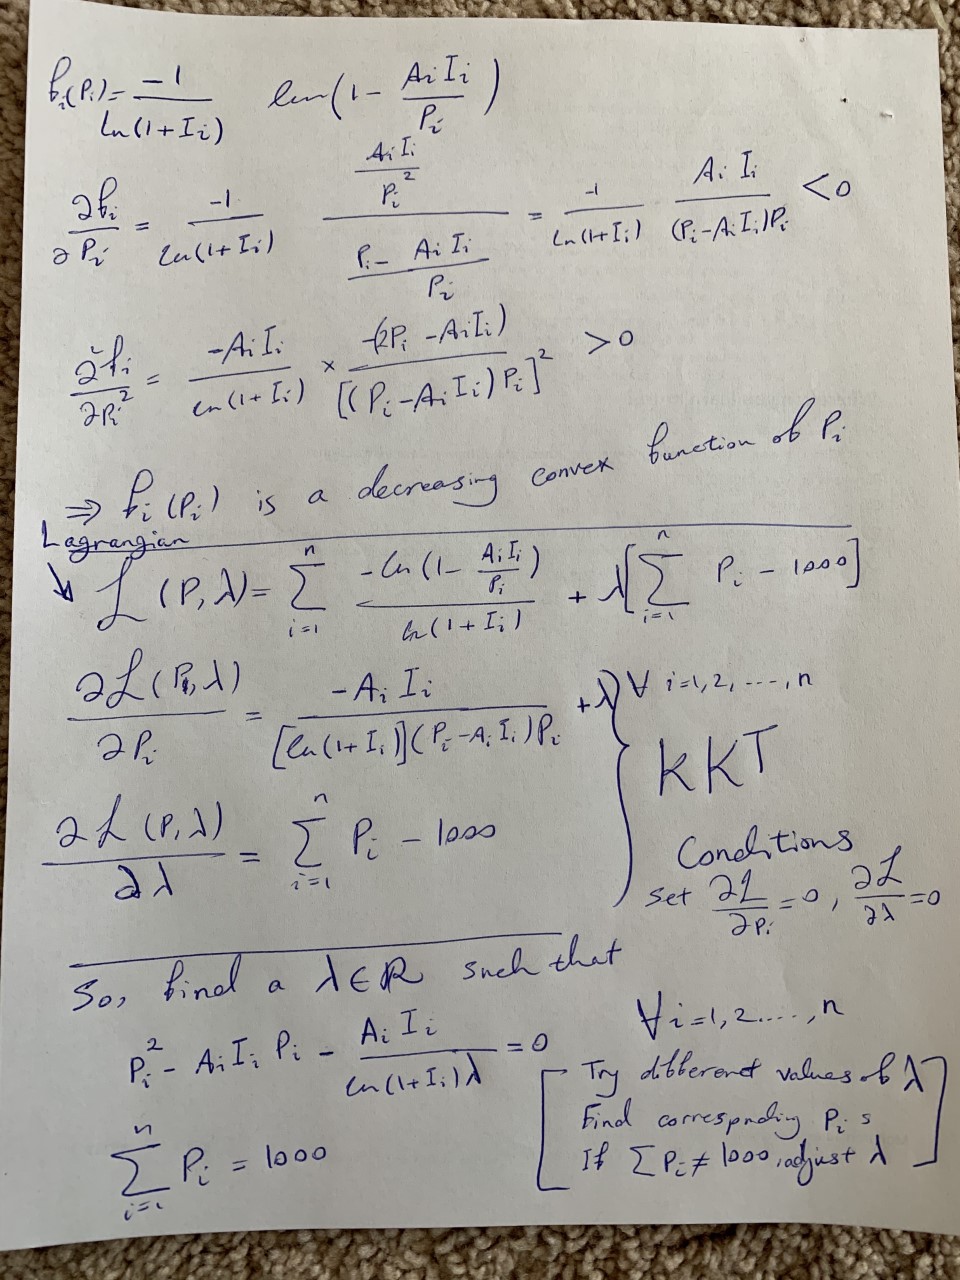 f_i(P_i) = -1/ln(1+I_i) ln(1 - A_i I_i/P_i)
∂f_i/∂P_i = -1/ln(1+I_i) (A_i I_i/P_i^2)/((P_i - A_i I_i)/P_i) = -1/ln(1+I_i) A_i I_i/((P_i - A_i I_i)P_i) < 0
∂²f_i/∂P_i² = -A_i I_i/ln(1+I_i) × -(2P_i - A_i I_i)/[(P_i - A_i I_i)P_i]² > 0
⇒ f_i(P_i) is a decreasing convex function of P_i
Lagrangian
↘ ℒ(P,λ) = Σ_{i=1}^{n} -ln(1 - A_i I_i/P_i)/ln(1+I_i) + λ[Σ_{i=1}^{n} P_i - 1000]
∂ℒ(P_i,λ)/∂P_i = -A_i I_i/([ln(1+I_i)](P_i - A_i I_i)P_i) + λ } ∀ i=1,2,----,n
KKT
∂ℒ(P,λ)/∂λ = Σ_{i=1}^{n} P_i - 1000
Conditions
Set ∂ℒ/∂P_i = 0, ∂ℒ/∂λ = 0
So, find a λ∈ℝ such that
P_i² - A_i I_i P_i - A_i I_i/(ln(1+I_i)λ) = 0 ∀ i=1,2....,n
Σ_{i=1}^{n} P_i = 1000
[Try different values of λ
Find correspnding P_i s
If Σ P_i ≠ 1000, adjust λ]